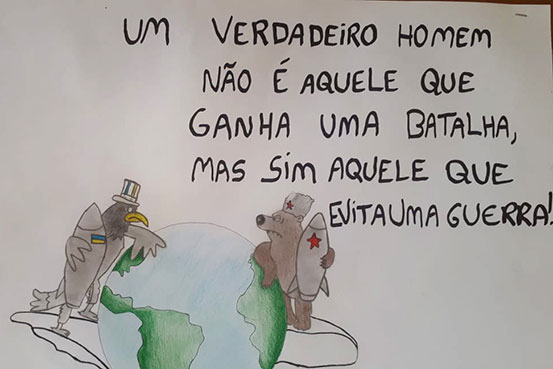 UM VERDADEIRO HOMEM
NÃO É AQUELE QUE
GANHA UMA BATALHA,
MAS SIM AQUELE QUE
EVITA UMA GUERRA!